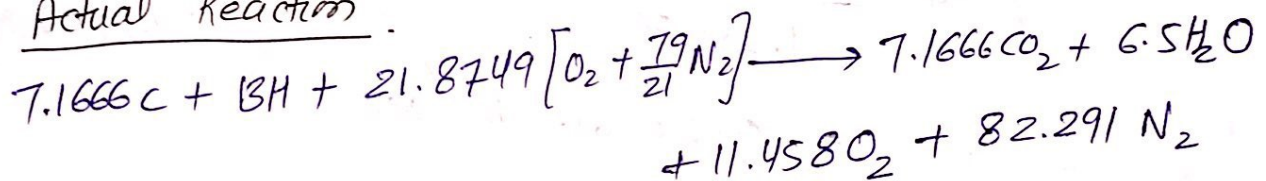 Actual Reaction.
7.1666C + 13H + 21.8749 [O₂ + 79/21 N₂] ⟶ 7.1666CO₂ + 6.5H₂O
+ 11.458O₂ + 82.291 N₂